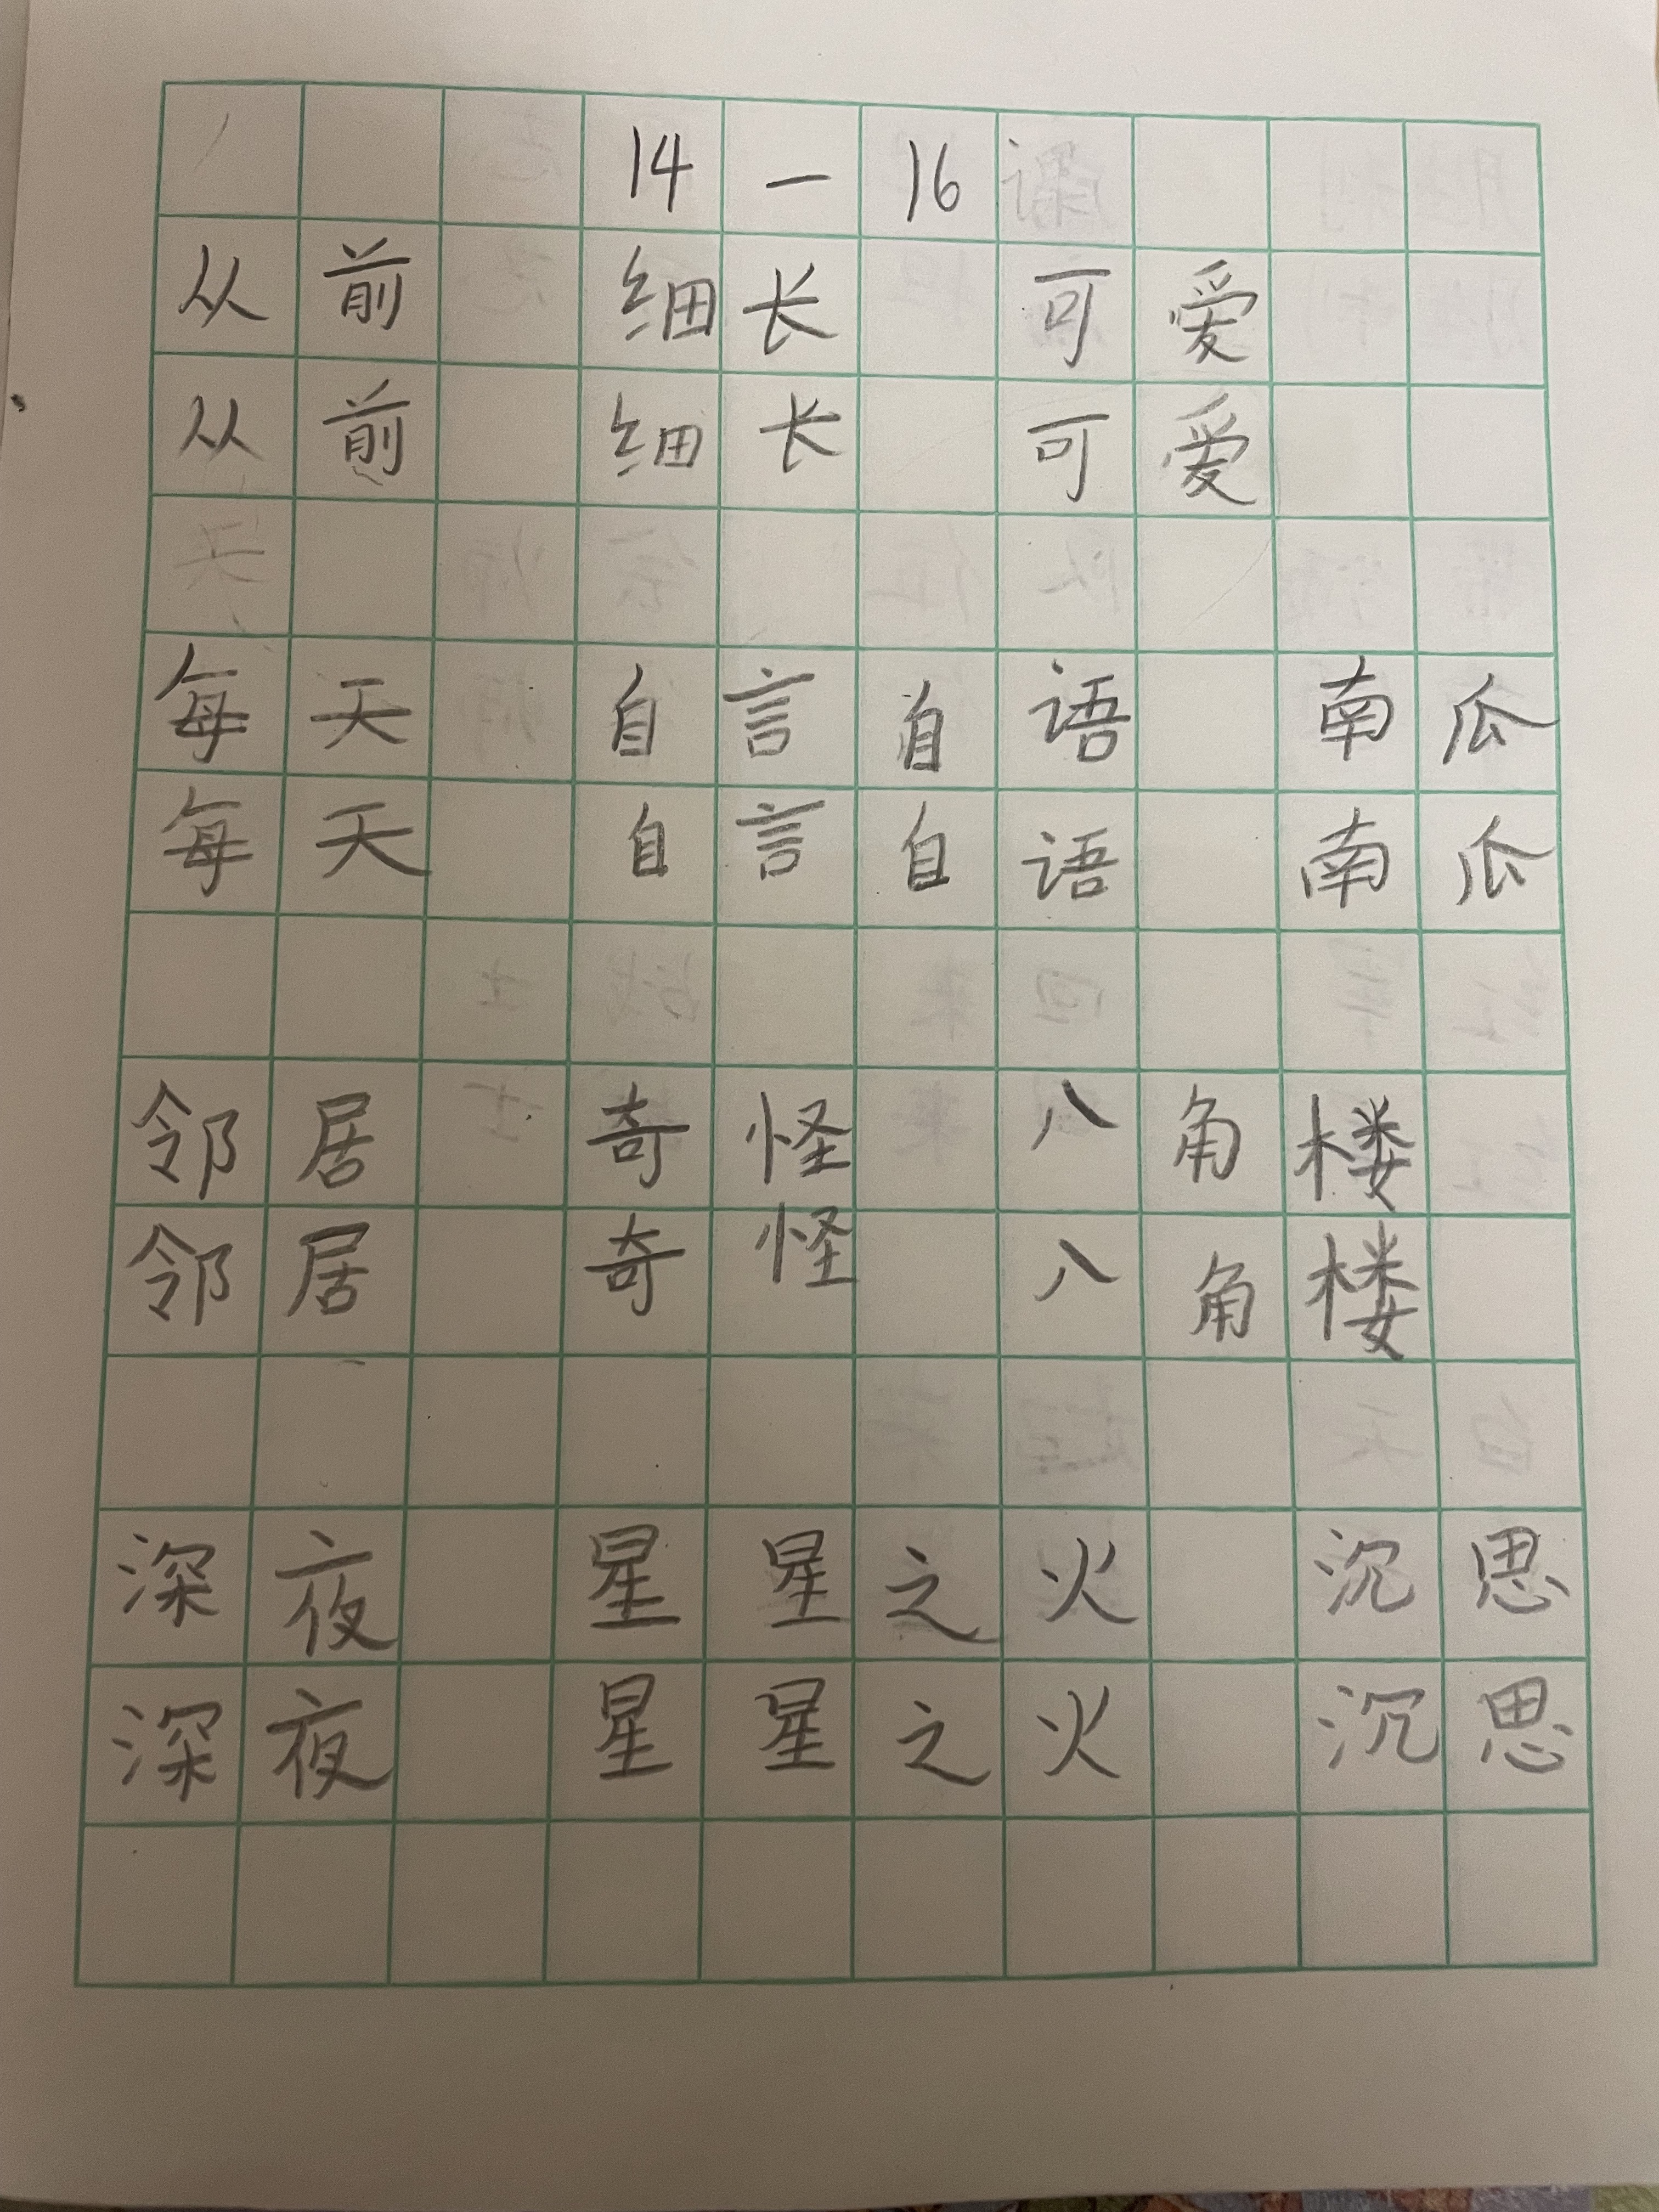 14 — 16
从前 细长 可爱
从前 细长 可爱
天
每天 自言自语 南瓜
每天 自言自语 南瓜
邻居 奇怪 八角楼
邻居 奇怪 八角楼
深夜 星星之火 沉思
深夜 星星之火 沉思